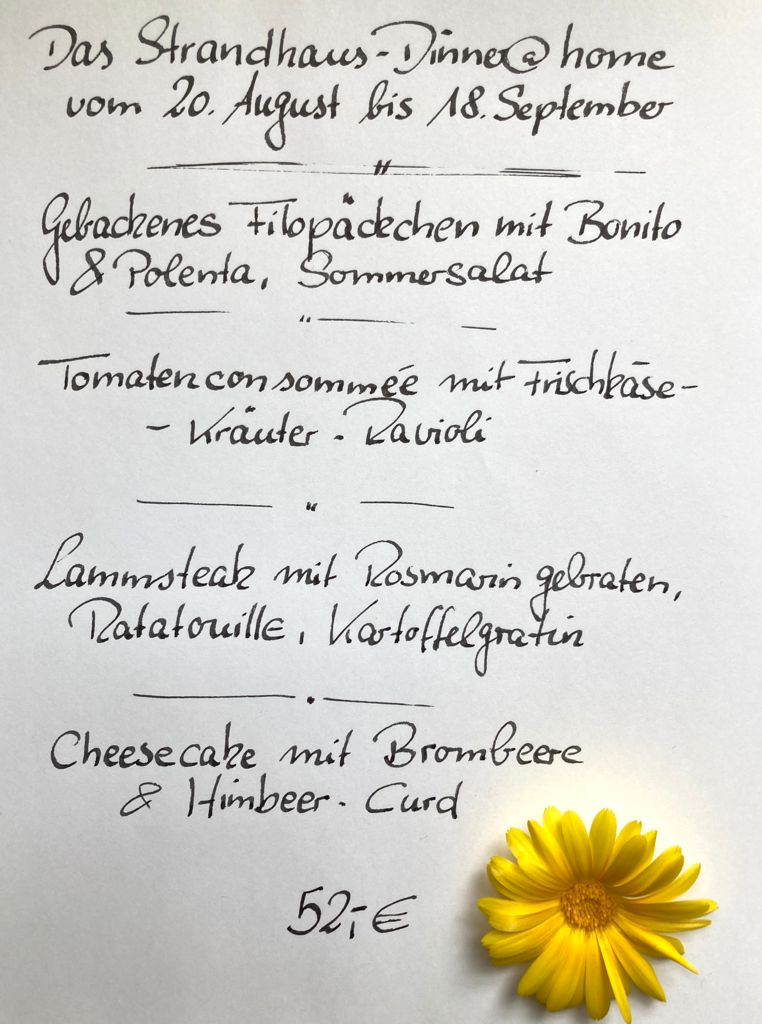 Das Strandhaus-Dinner@home
vom 20. August bis 18. September
Gebackenes Filopäckchen mit Bonito
& Polenta, Sommersalat
Tomatenconsommée mit Frischkäse-
- Kräuter - Ravioli
Lammsteak mit Rosmarin gebraten,
Ratatouille, Kartoffelgratin
Cheesecake mit Brombeere
& Himbeer-Curd
52,-€